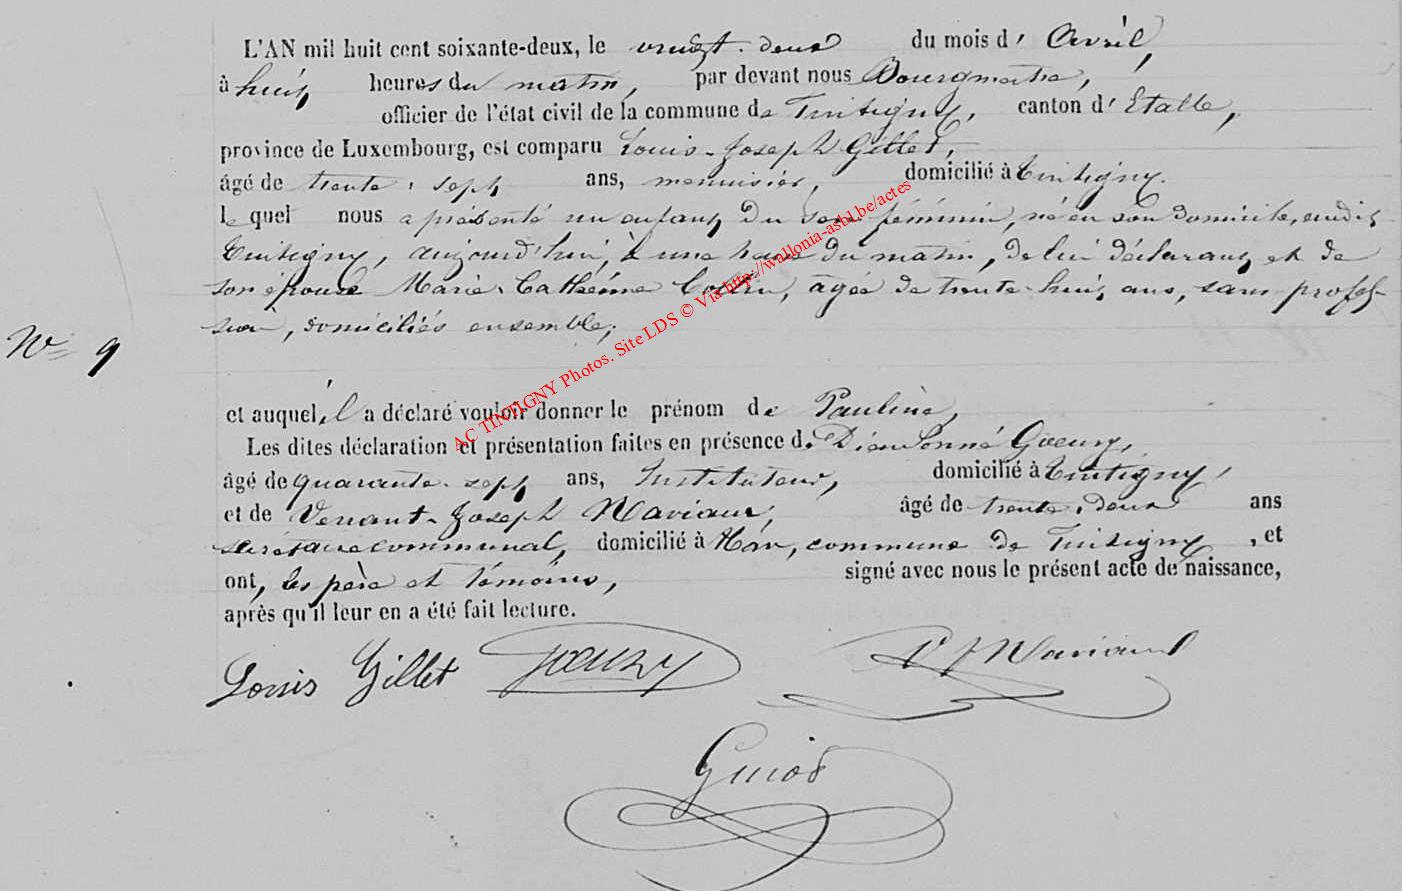 L'AN mil huit cent soixante-deux, le vingt-deux du mois d' Avril,
à huit heures du matin, par devant nous Bourgmestre,
officier de l'état civil de la commune de Tintigny, canton d'Etalle,
province de Luxembourg, est comparu Louis-Joseph Gillet,
âgé de trente-sept ans, menuisier, domicilié à Tintigny.
lequel nous a présenté un enfant du sexe féminin, né en son domicile, audit
Tintigny, aujourd'hui, à une heure du matin, de lui déclarant et de
son épouse Marie-Catherine, agée de trente-huit ans, sans profes-
sion, domiciliés ensemble;
N° 9
et auquel, il a déclaré vouloir donner le prénom de Pauline,
Les dites déclaration et présentation faites en présence de Dieudonné Goeury,
âgé de quarante-sept ans, Instituteur, domicilié à Tintigny,
et de Venant-Joseph Maviaux, âgé de trente-deux ans
secrétaire communal, domicilié à Han, commune de Tintigny, et
ont, les père et témoins, signé avec nous le présent acte de naissance,
après qu'il leur en a été fait lecture.
Louis Gillet Goeury V J Maviaux
Guiot
AC TINTIGNY Photos. Site LDS © Via http://wallonia-asbl.be/actes